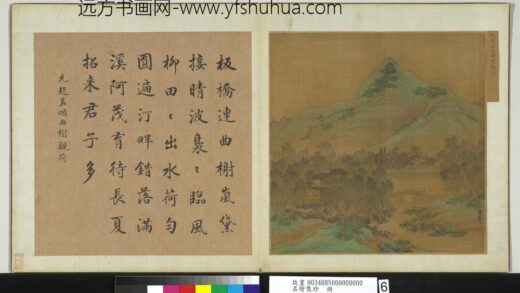 远方书画网-www.yfshuhua.com
板橋連曲榭嵐黛
接晴波裊〻臨風
柳田〻出水荷勻
圓遍汀畔錯落滿
溪阿茂育待長夏
招来君子多
元趙孟頫西榭觀荷
故畫 003488N000000000
名繪集珍 冊
6